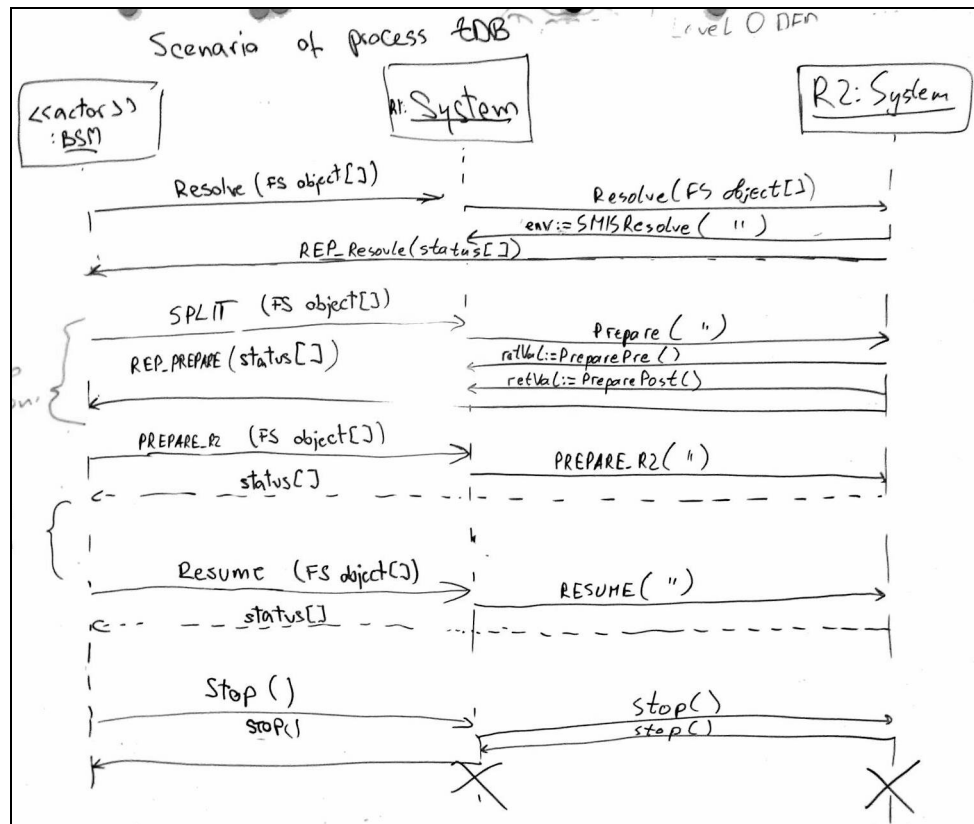 Scenario of process tDB
Level 0 DFD
<<actors>>
: BSM
R1: System
R2: System
Resolve (FS object[])
Resolve (FS object[])
env:= SMISResolve ( " )
REP_Resovle(status[])
SPLIT (FS object[])
Prepare ( " )
REP_PREPARE (status[])
retVal:= PreparePre ()
retVal:= PreparePost()
PREPARE_R2 (FS object[])
PREPARE_R2 ( " )
status[]
Resume (FS object[])
RESUME ( " )
status[]
Stop ()
stop()
STOP()
stop()